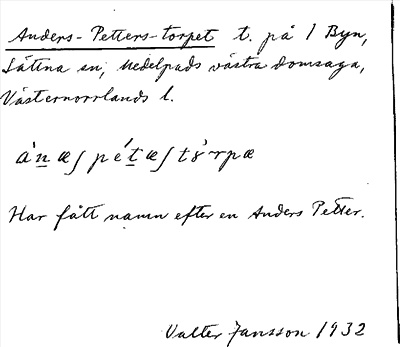 Anders-Petters-torpet t. på 1 Byn,
Lättna sn, Medelpads västra domsaga,
Västernorrlands l.
a'næʃ pétæʃ tɤ'rpæ
Har fått namn efter en Anders Petter.
Valter Jansson 1932